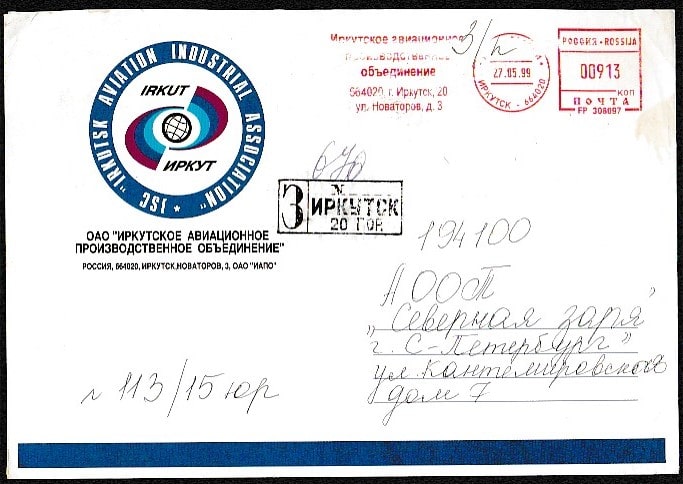 "IRKUTSK AVIATION INDUSTRIAL ASSOCIATION" * JSC
IRKUT
ИРКУТ
ОАО "ИРКУТСКОЕ АВИАЦИОННОЕ
ПРОИЗВОДСТВЕННОЕ ОБЪЕДИНЕНИЕ"
РОССИЯ, 664020, ИРКУТСК,НОВАТОРОВ, 3, ОАО "ИАПО"
Иркутское авиационное
производственное
объединение
664020, г. Иркутск, 20
ул. Новаторов, д. 3
З/п
27.05.99
ИРКУТСК - 664020
РОССИЯ-ROSSIJA
00913
КОП
ПОЧТА
FP 308097
670
З
N
ИРКУТСК
20 ГОР.
194100
АООТ
"Северная заря"
г. С-Петербург
ул. Кантемировская
дом 7
113/15 юр